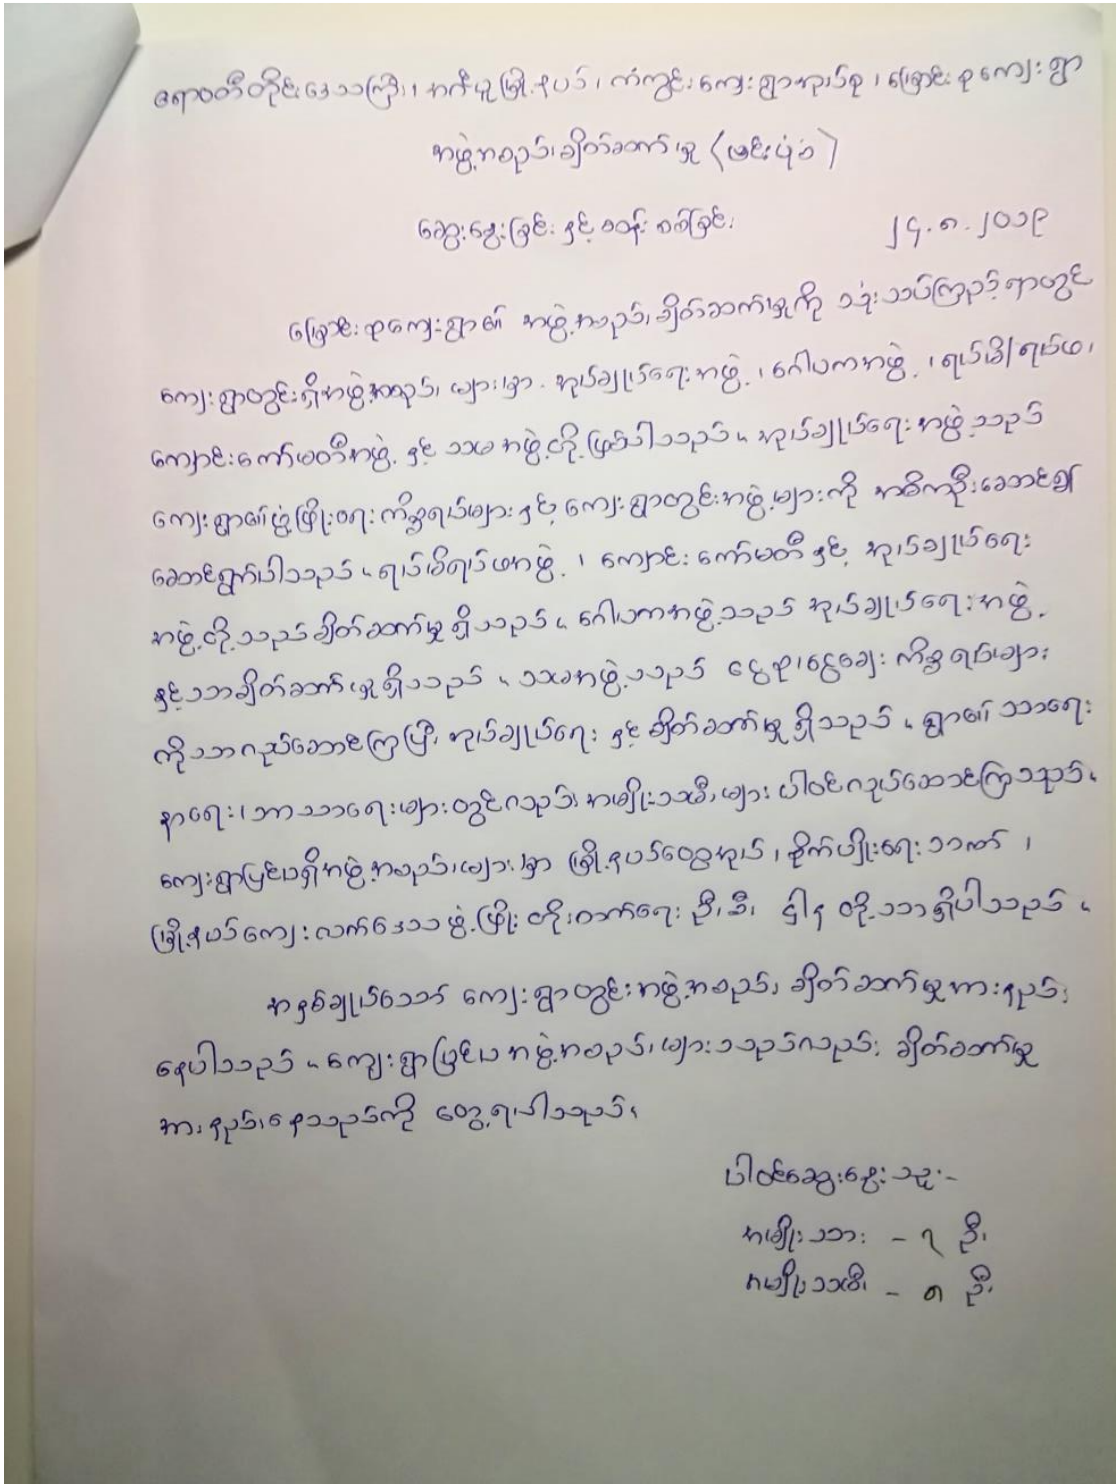 ဧရာဝတီတိုင်းဒေသကြီး၊ အင်္ဂပူမြို့နယ်၊ ကံကွင်းကျေးရွာအုပ်စု၊ မြောင်းစုကျေးရွာ
အဖွဲ့အစည်းချိတ်ဆက်မှု (ဗင်းပုံစံ)
ဆွေးနွေးခြင်း နှင့် စသုံးစစ်ခြင်း
၂၄.၈.၂၀၁၉
မြောင်းစုကျေးရွာ၏ အဖွဲ့အစည်းချိတ်ဆက်မှုကို သုံးသပ်ကြည့်ရာတွင်
ကျေးရွာတွင်းရှိအဖွဲ့အစည်းများမှာ အုပ်ချုပ်ရေးအဖွဲ့၊ ဂေါပကအဖွဲ့၊ ရပ်မိ/ရပ်ဖ၊
ကျောင်းကော်မတီအဖွဲ့ နှင့် သမအဖွဲ့တို့ဖြစ်ပါသည်။ အုပ်ချုပ်ရေးအဖွဲ့သည်
ကျေးရွာ၏ဖွံ့ဖြိုးရေးကိစ္စရပ်များနှင့် ကျေးရွာတွင်းအဖွဲ့များကို အဓိကဦးဆောင်၍
ဆောင်ရွက်ပါသည်။ ရပ်မိရပ်ဖအဖွဲ့၊ ကျောင်းကော်မတီနှင့် အုပ်ချုပ်ရေး
အဖွဲ့တို့သည်ချိတ်ဆက်မှုရှိသည်။ ဂေါပကအဖွဲ့သည် အုပ်ချုပ်ရေးအဖွဲ့
နှင့်သာချိတ်ဆက်မှုရှိသည်။ သမအဖွဲ့သည် ငွေစု၊ငွေချေး ကိစ္စရပ်များ
ကိုသာလုပ်ဆောင်ကြပြီး အုပ်ချုပ်ရေး နှင့် ချိတ်ဆက်မှုရှိသည်။ ရွာ၏ သာရေး
နာရေး၊ဘာသာရေးများတွင်လည်း အမျိုးသမီးများ ပါဝင်လုပ်ဆောင်ကြသည်။
ကျေးရွာပြင်ပရှိအဖွဲ့အစည်းများမှာ မြို့နယ်ထွေအုပ်၊ စိုက်ပျိုးရေးဘဏ်၊
မြို့နယ်ကျေးလက်ဒေသဖွံ့ဖြိုးတိုးတက်ရေးဦးစီးဌါနတို့သာရှိပါသည်။
အနှစ်ချုပ်သော် ကျေးရွာတွင်းအဖွဲ့အစည်းချိတ်ဆက်မှုအားနည်း
နေပါသည်။ ကျေးရွာပြင်ပအဖွဲ့အစည်းများသည်လည်း ချိတ်ဆက်မှု
အားနည်းနေသည်ကို တွေ့ရပါသည်။
ပါဝင်ဆွေးနွေးသူ-
အမျိုးသား - ၇ ဦး
အမျိုးသမီး - ၈ ဦး